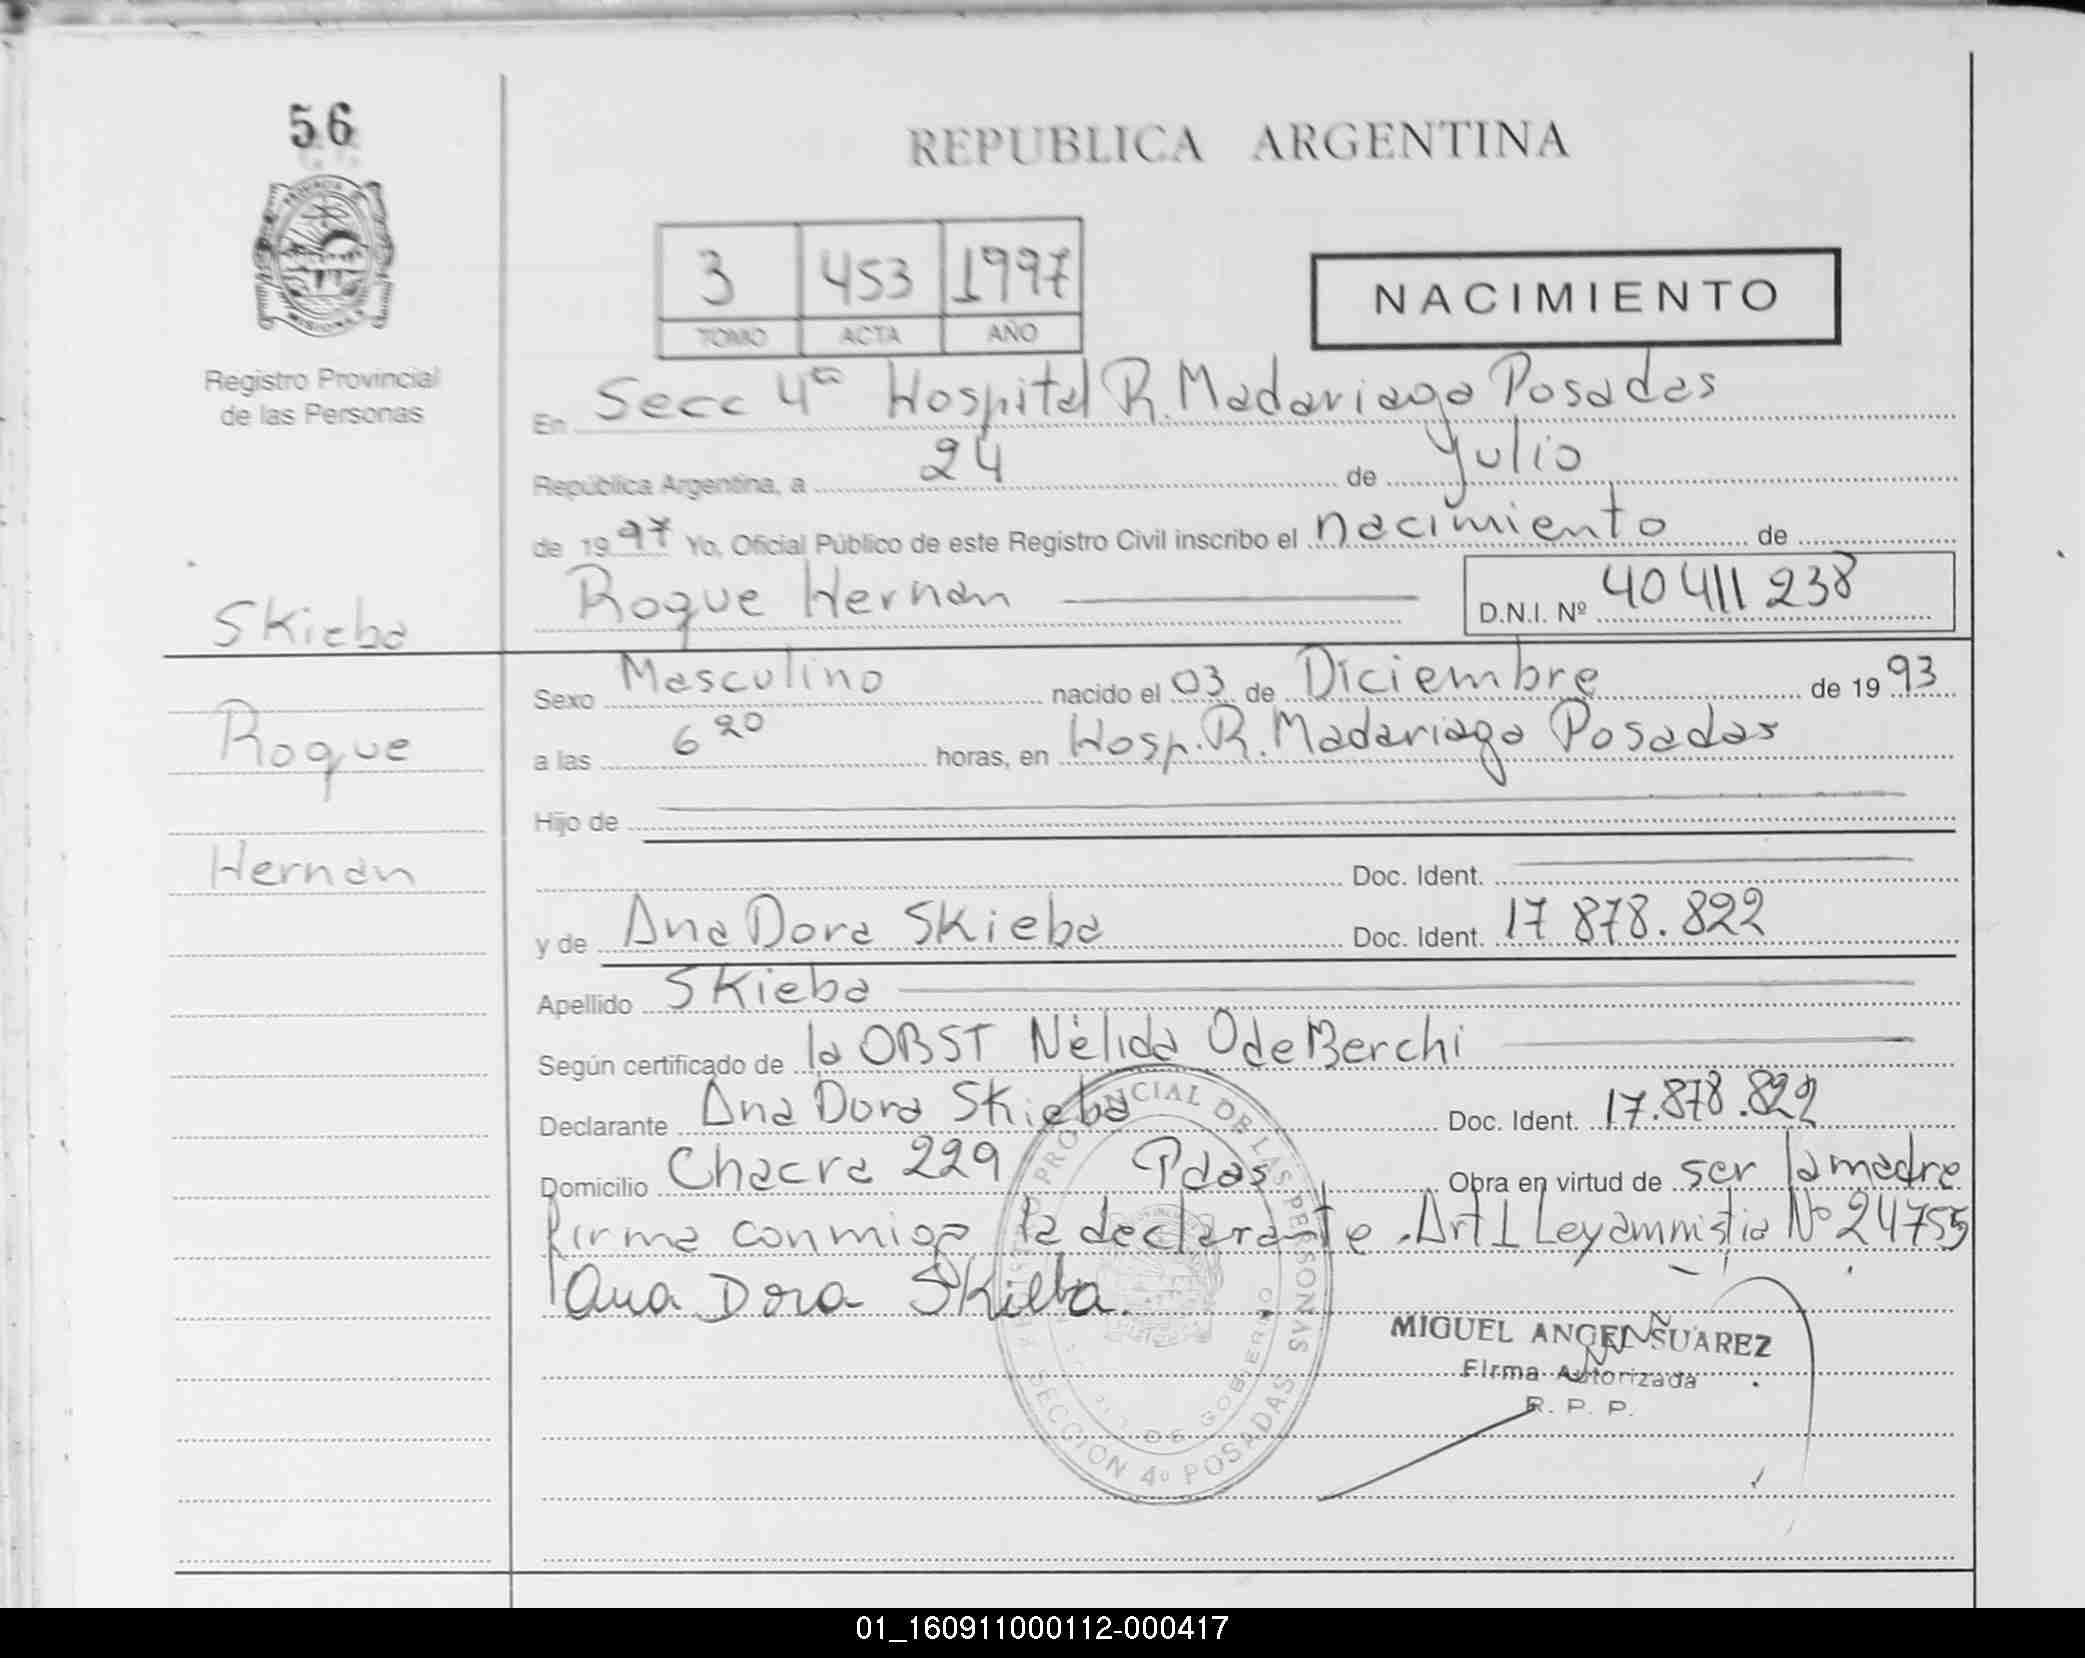 56
REPUBLICA ARGENTINA
3 453 1997
TOMO ACTA AÑO
NACIMIENTO
Registro Provincial
de las Personas
En Secc 4ta Hospital R. Madariaga Posadas
República Argentina, a 24 de Julio
de 1997 Yo, Oficial Público de este Registro Civil inscribo el nacimiento de
Roque Hernan D.N.I. Nº 40 411 238
Skieba
Roque
Hernan
Sexo Masculino nacido el 03 de Diciembre de 1993
a las 6 20 horas, en Hosp. R. Madariaga Posadas
Hijo de
Doc. Ident.
y de Ana Dora Skieba Doc. Ident. 17 878.822
Apellido Skieba
Según certificado de la OBST Nélida O de Berchi
Declarante Ana Dora Skieba Doc. Ident. 17.878.822
Domicilio Chacra 229 Pdas Obra en virtud de ser la madre
firma conmigo la declarante. Art 1 Ley ammistia Nº 24755
Ana Dora Skieba
MIGUEL ANGEL SUAREZ
Firma Autorizada
R. P. P.
PROVINCIAL DE LAS PERSONAS
DE GOBIERNO
SECCION 4º POSADAS
01_160911000112-000417